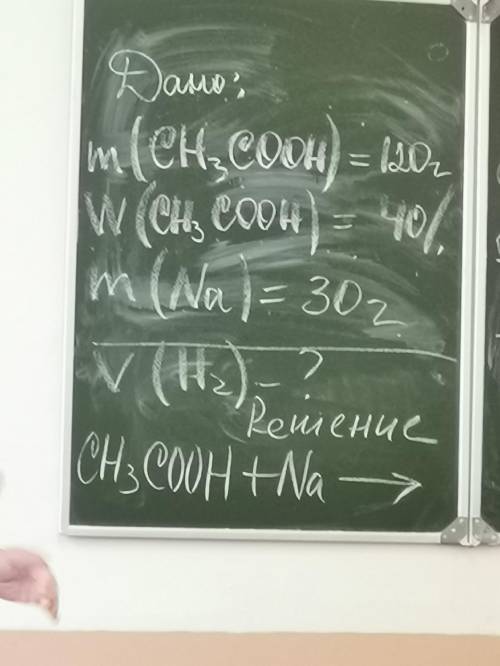 Дано:
m(CH₃COOH) = 120г
W(CH₃COOH) = 40%
m(Na) = 30г
V(H₂) - ?
Решение
CH₃COOH + Na →